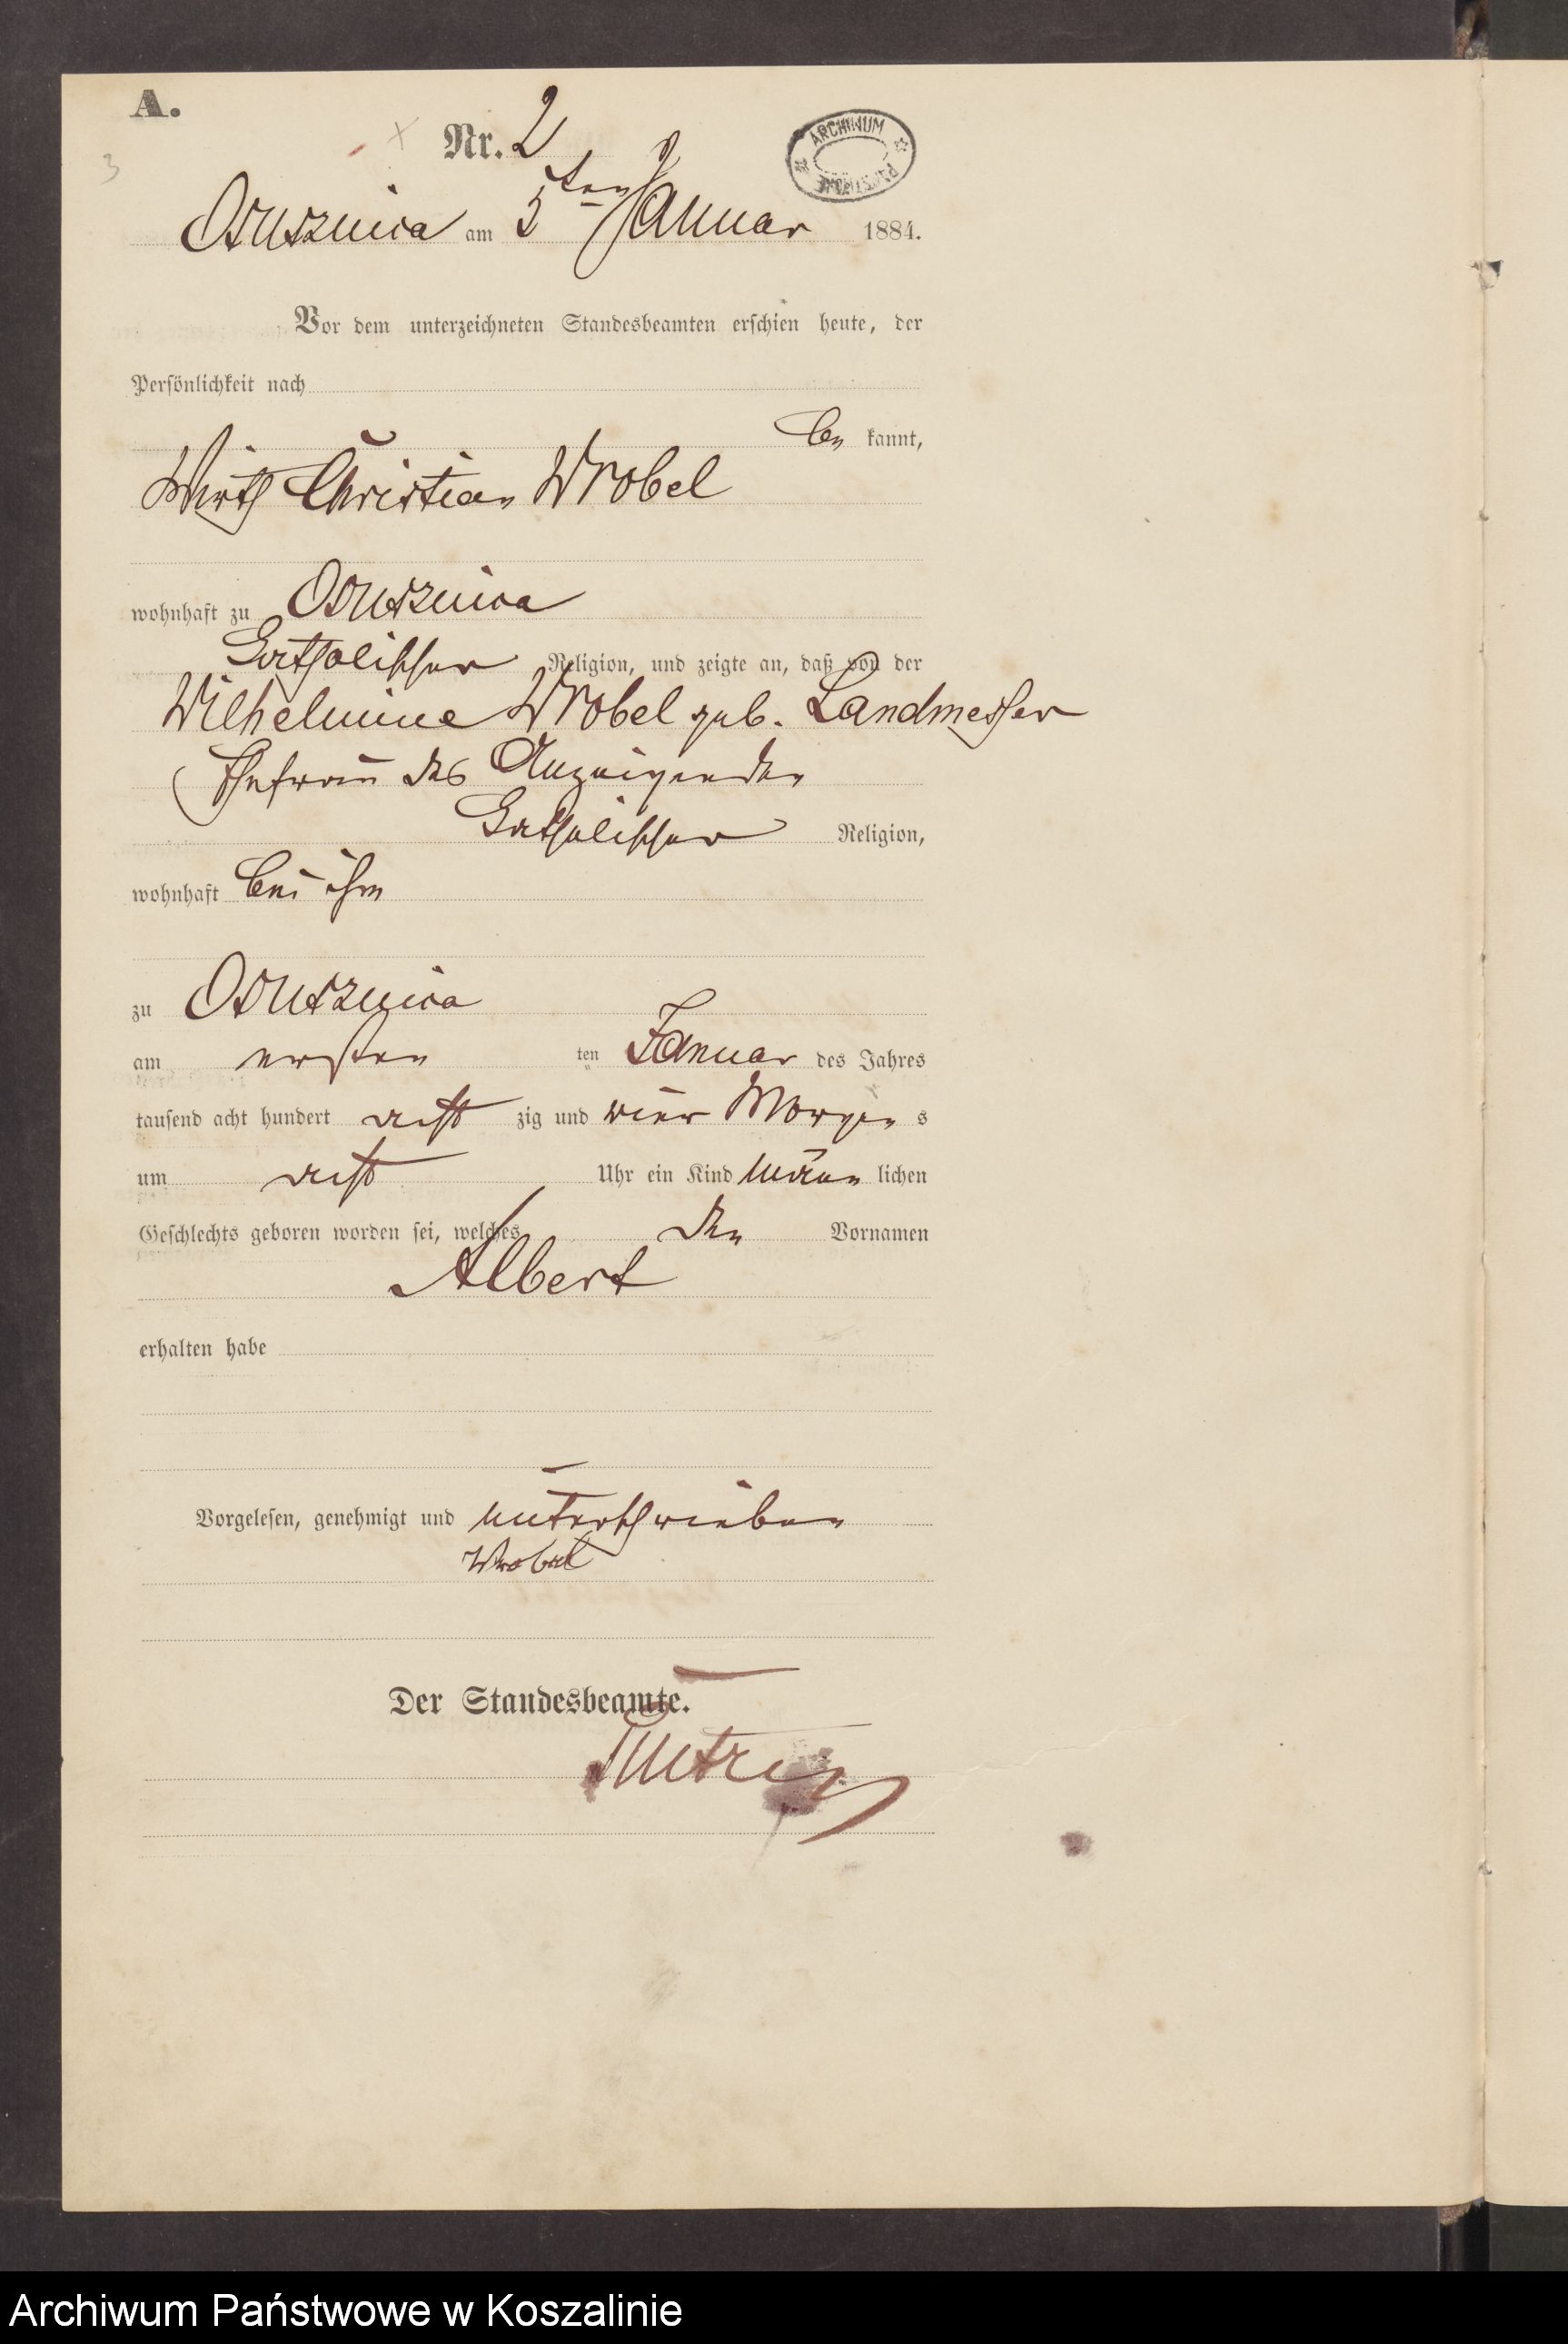 A.
3
Nr. 2
ARCHIWUM
Ossusznica am 5ten Januar 1884.
Vor dem unterzeichneten Standesbeamten erschien heute, der
Persönlichkeit nach
be kannt,
Wirth Christian Wrobel
wohnhaft zu Ossusznica
katholischer Religion, und zeigte an, daß von der
Wilhelmine Wrobel geb. Landmesser
Ehefrau des Anzeigenden
katholischer Religion,
wohnhaft bei ihm
zu Ossusznica
am ersten ten Januar des Jahres
tausend acht hundert acht zig und vier Morgen s
um acht Uhr ein Kind männ lichen
Geschlechts geboren worden sei, welches den Vornamen
Albert
erhalten habe
Vorgelesen, genehmigt und unterschrieben
Wrobel
Der Standesbeamte.
Archiwum Państwowe w Koszalinie